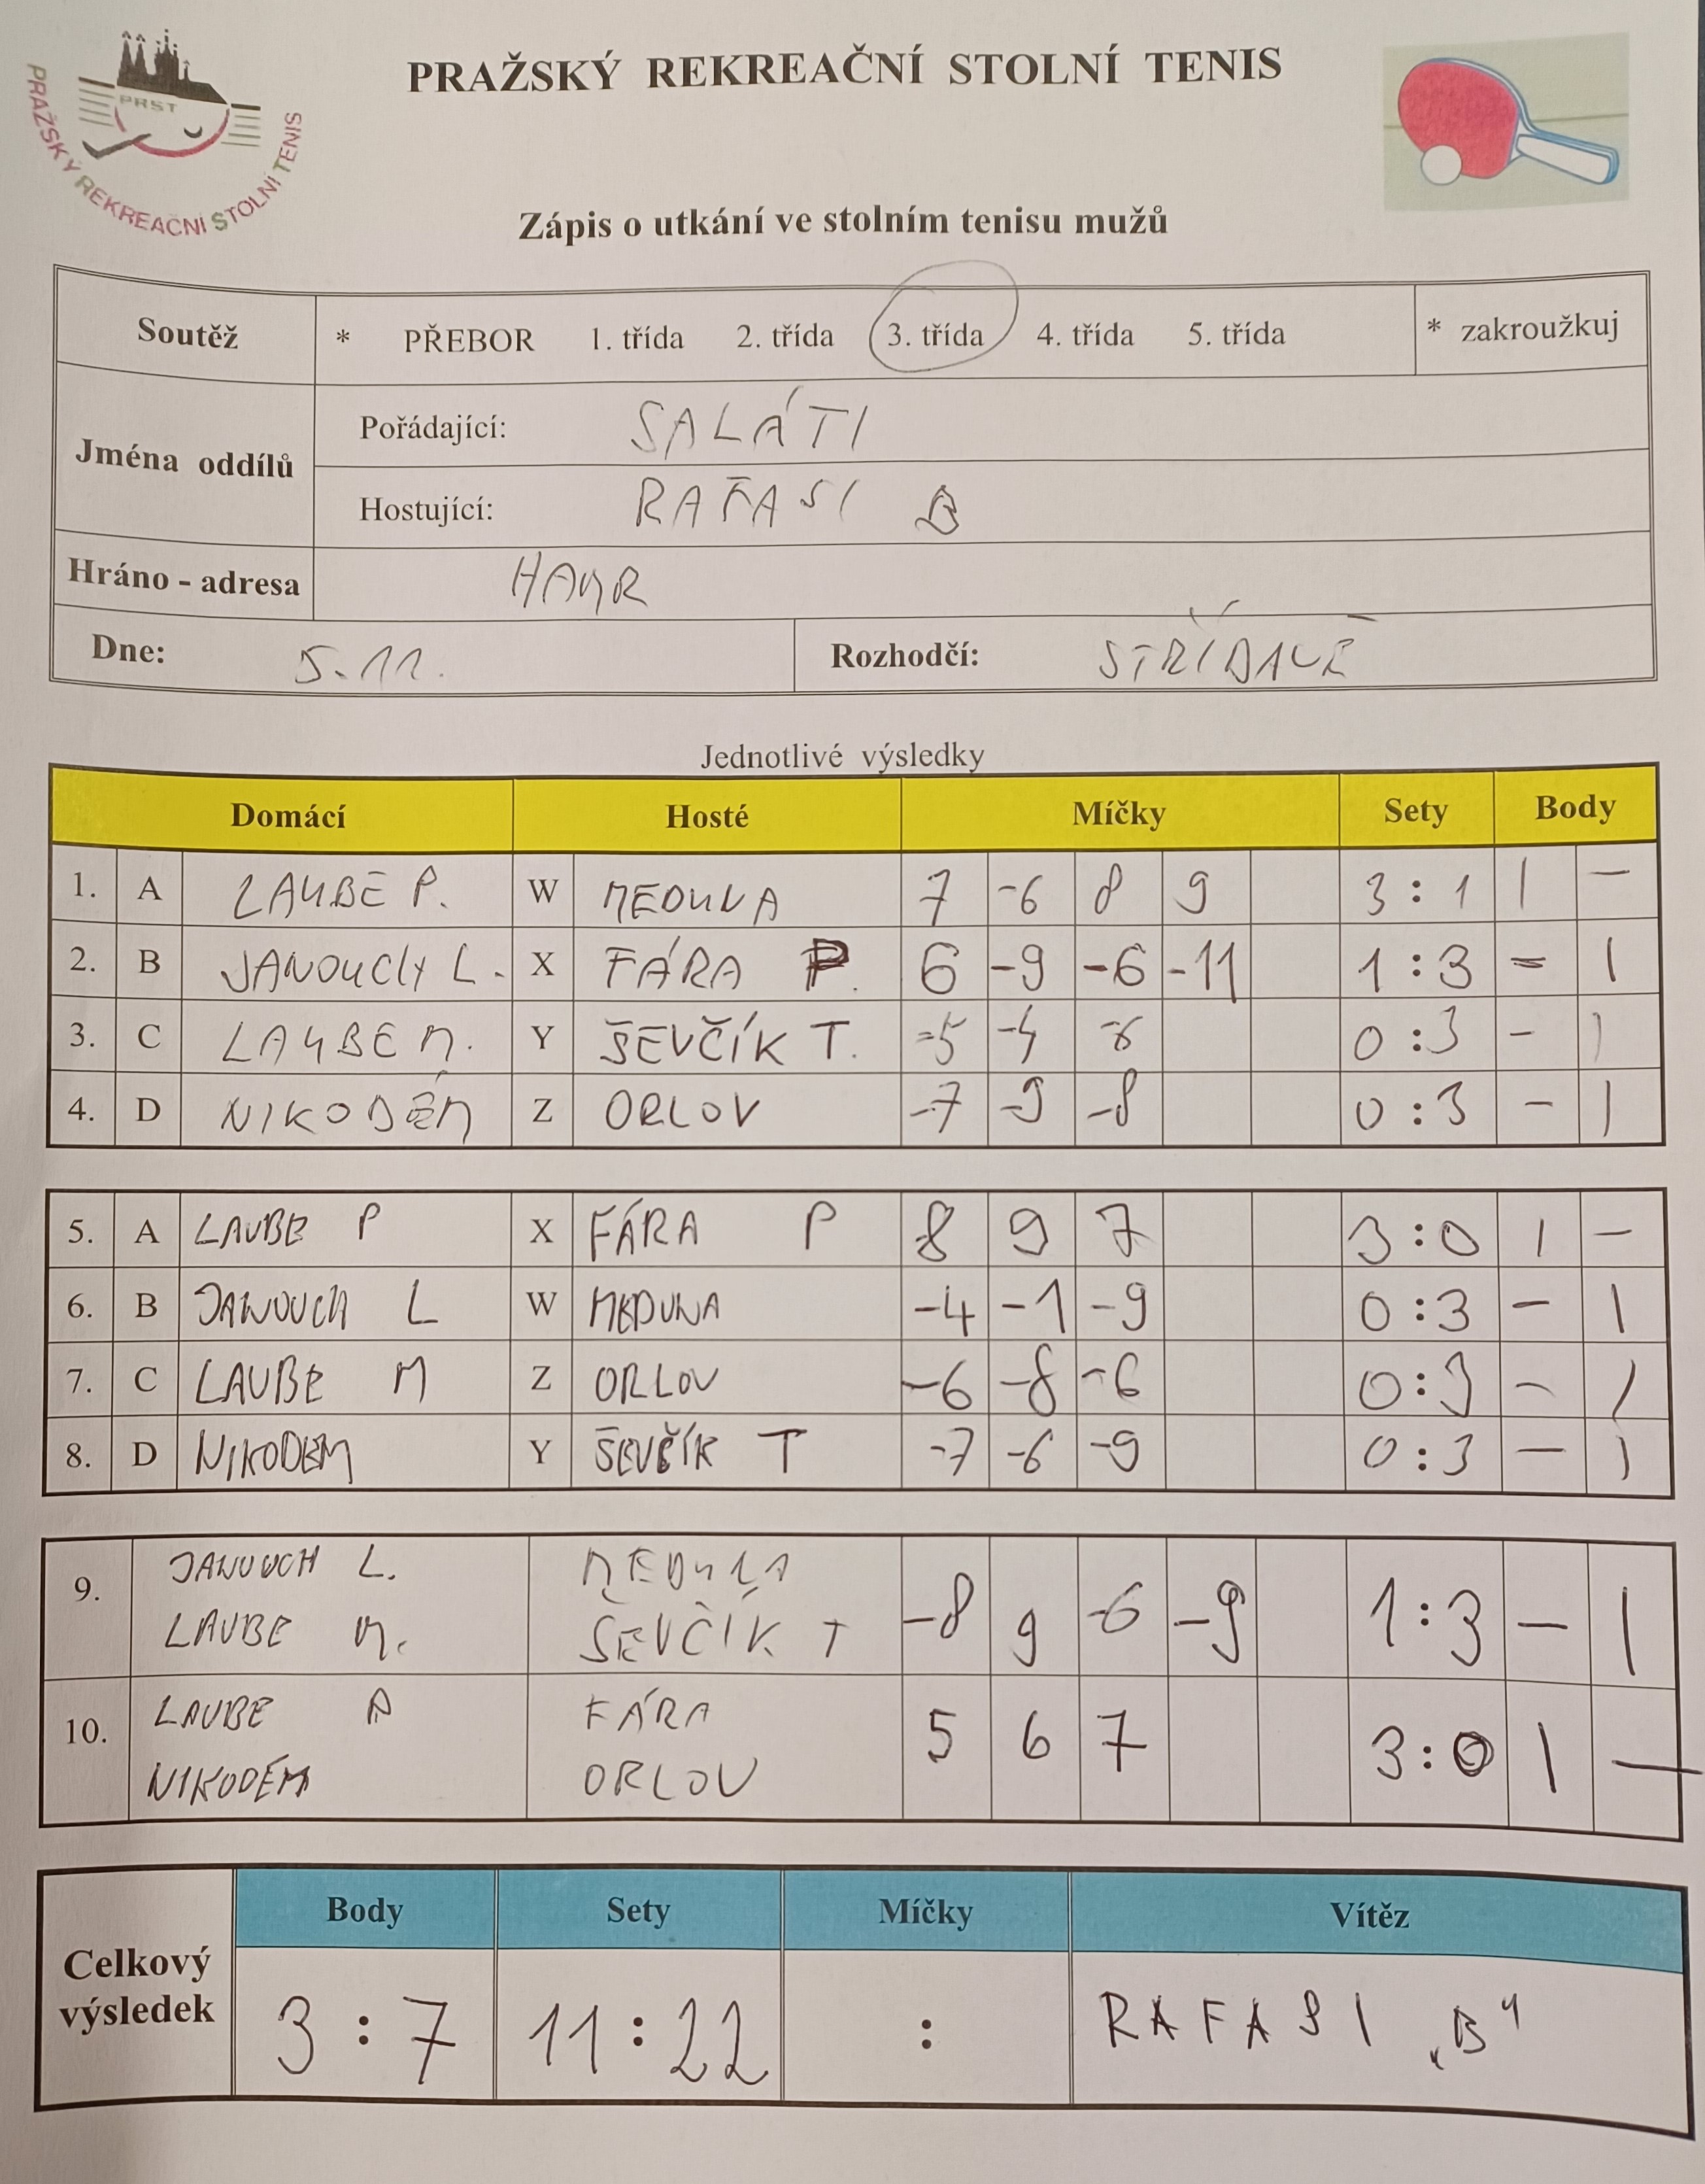 PRAŽSKÝ REKREAČNÍ STOLNÍ TENIS
PRST
PRAŽSKÝ REKREAČNÍ STOLNÍ TENIS
Zápis o utkání ve stolním tenisu mužů
Soutěž * PŘEBOR 1. třída 2. třída 3. třída 4. třída 5. třída * zakroužkuj
Jména oddílů
Pořádající: SALÁTI
Hostující: RAFASI B
Hráno - adresa HAMR
Dne: 5.11. Rozhodčí: STŘÍDAVĚ
Jednotlivé výsledky
Domácí Hosté Míčky Sety Body
1. A LAUBE P. W MEDUNA 7 -6 8 9 3 : 1 1 -
2. B JANOUCH L. X FÁRA P. 6 -9 -6 -11 1 : 3 - 1
3. C LAUBE M. Y ŠEVČÍK T. -5 -4 -6 0 : 3 - 1
4. D NIKODÉM Z ORLOV -7 -9 -8 0 : 3 - 1
5. A LAUBE P X FÁRA P 8 9 7 3 : 0 1 -
6. B JANOUCH L W MEDUNA -4 -1 -9 0 : 3 - 1
7. C LAUBE M Z ORLOV -6 -8 -6 0 : 3 - 1
8. D NIKODEM Y ŠEVČÍK T -7 -6 -9 0 : 3 - 1
9. JANOUCH L. MEDUNA -8 9 -6 -9 1 : 3 - 1
LAUBE M. ŠEVČÍK T
10. LAUBE FÁRA 5 6 7 3 : 0 1 -
NIKODÉM ORLOV
Body Sety Míčky Vítěz
Celkový výsledek 3 : 7 11 : 22 : RAFASI „B"